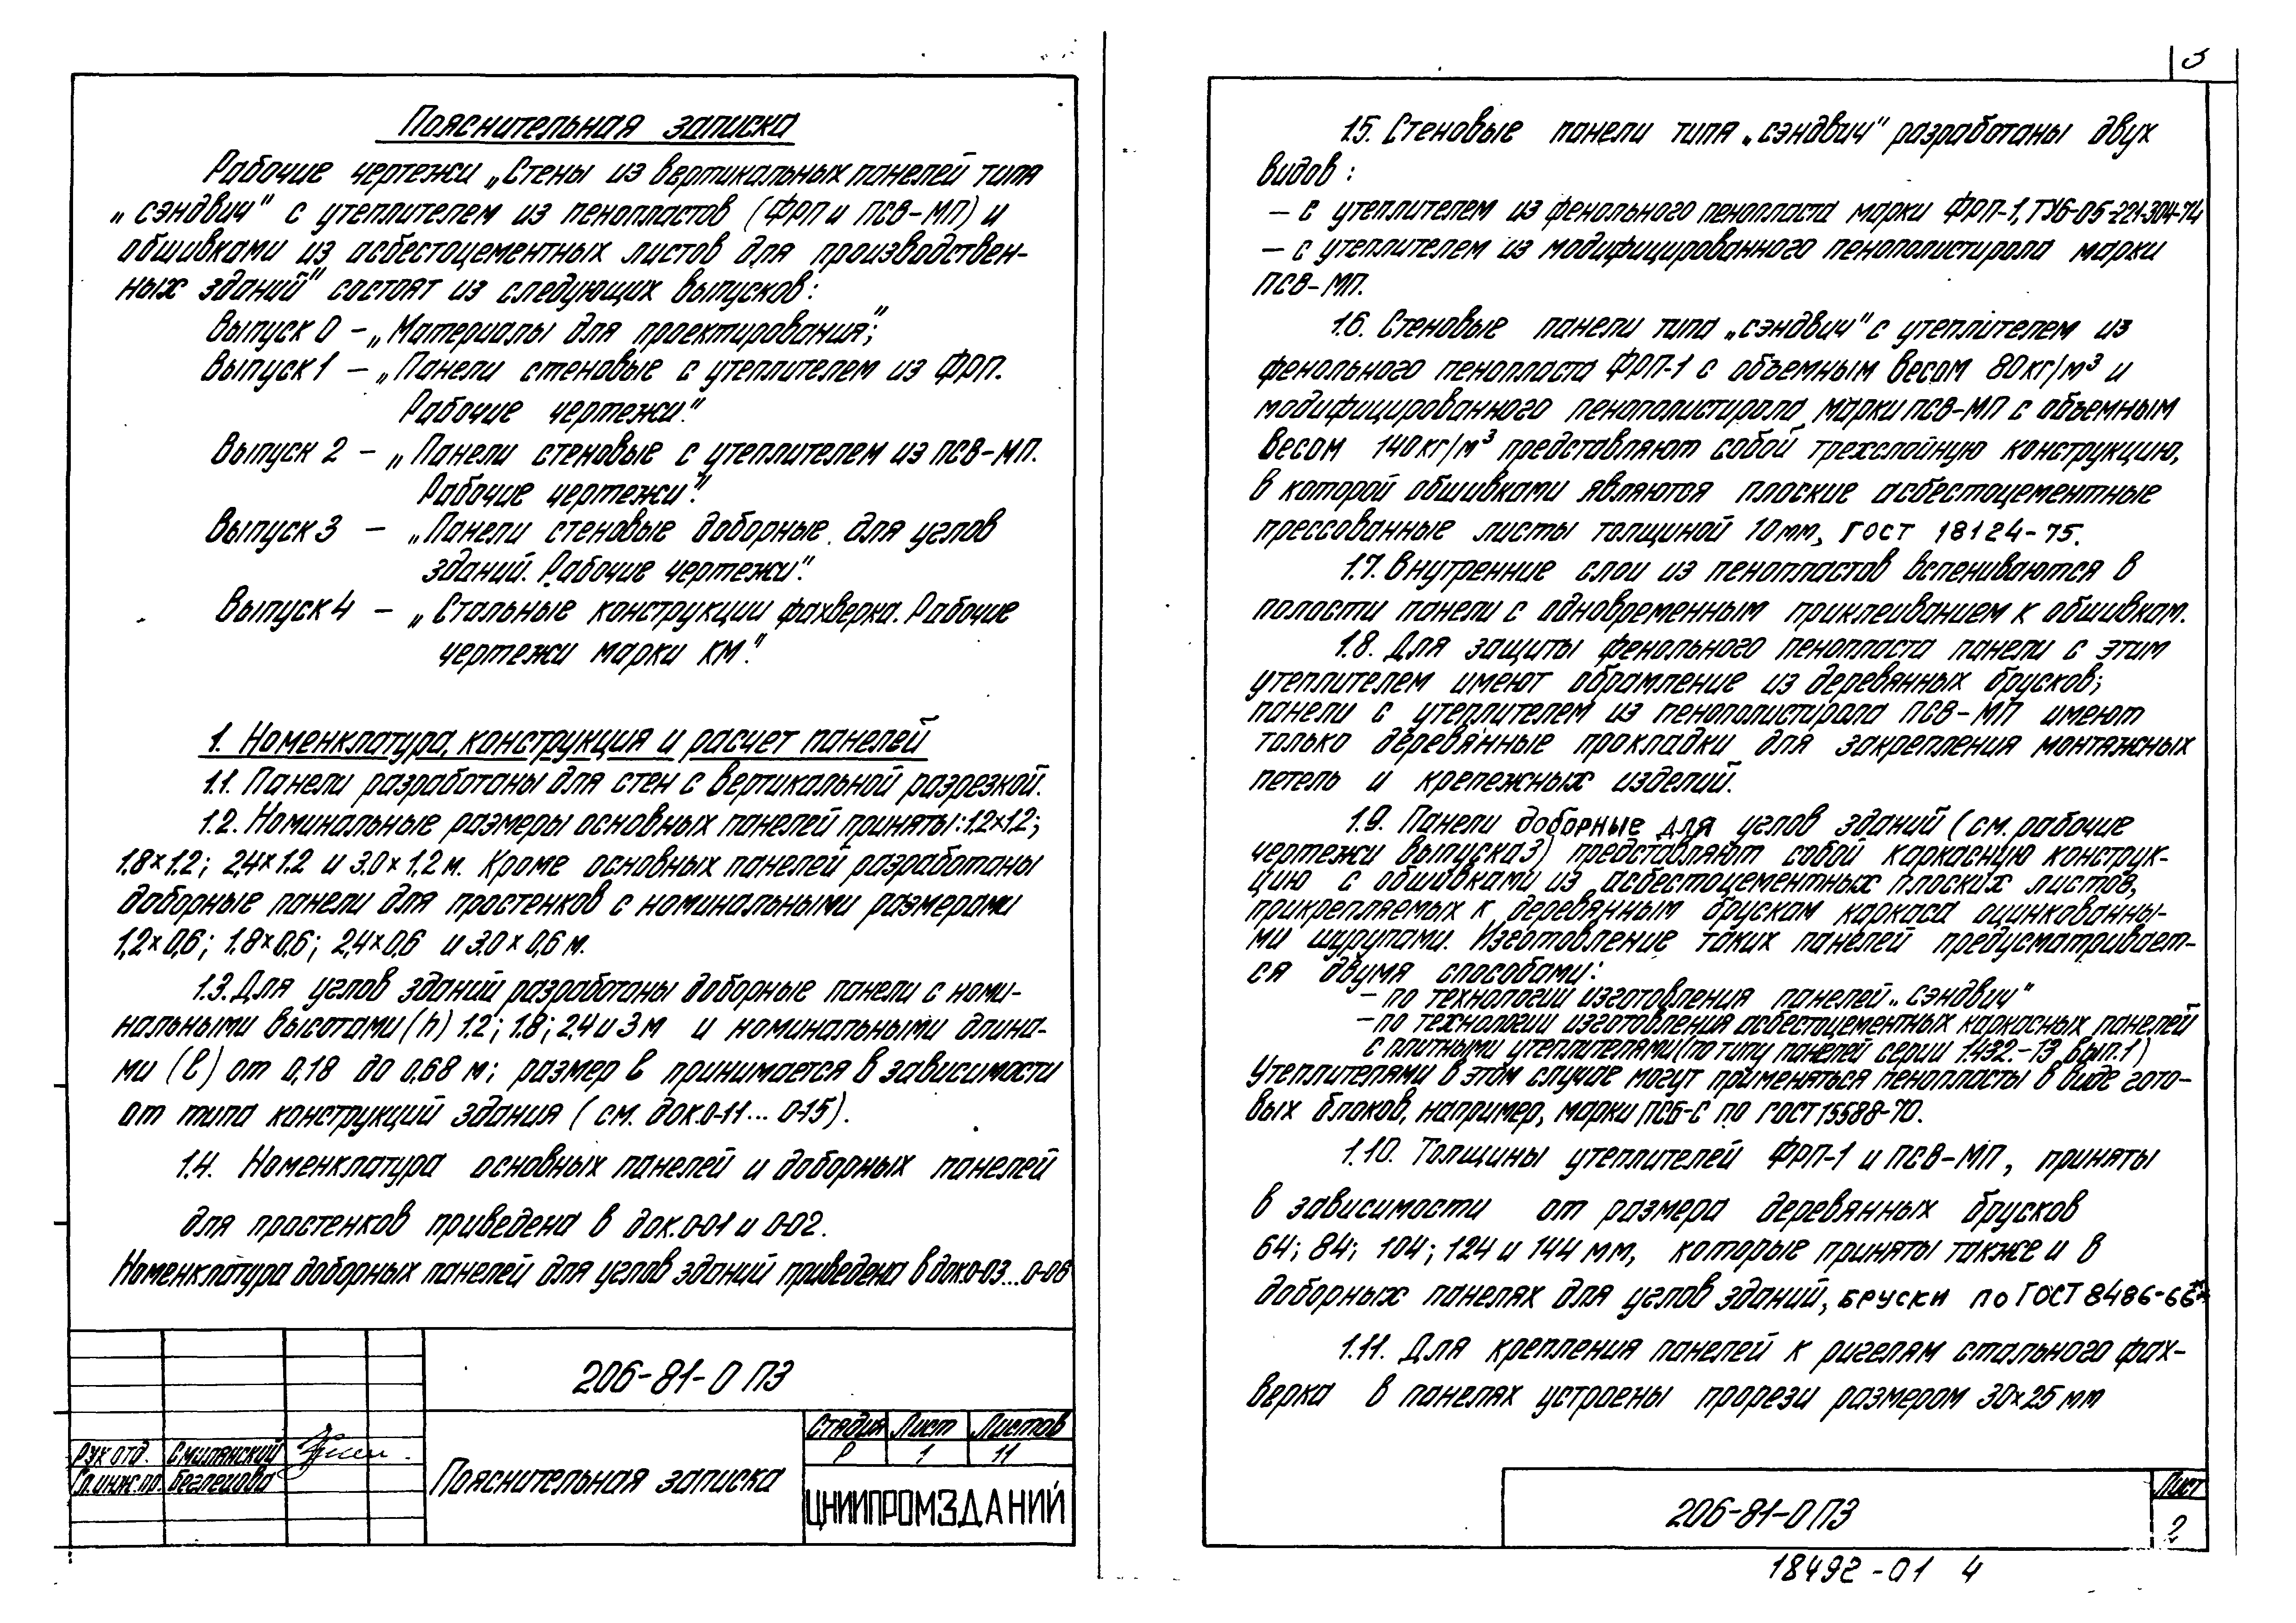 Пояснительная записка
Рабочие чертежи „Стены из вертикальных панелей типа
„сэндвич" с утеплителем из пенопластов (ФРП и ПСВ-МП) и
обшивками из асбестоцементных листов для производствен-
ных зданий" состоят из следующих выпусков:
Выпуск 0 – „Материалы для проектирования";
Выпуск 1 – „Панели стеновые с утеплителем из ФРП.
Рабочие чертежи."
Выпуск 2 – „Панели стеновые с утеплителем из ПСВ-МП.
Рабочие чертежи".
Выпуск 3 – „Панели стеновые доборные для углов
зданий. Рабочие чертежи".
Выпуск 4 – „Стальные конструкции фахверка. Рабочие
чертежи марки КМ".
1. Номенклатура, конструкция и расчет панелей
1.1. Панели разработаны для стен с вертикальной разрезкой.
1.2. Номинальные размеры основных панелей приняты: 1,2×1,2;
1.8×1.2; 2,4×1.2 и 3.0×1,2 м. Кроме основных панелей разработаны
доборные панели для простенков с номинальными размерами
1,2×0,6; 1.8×0,6; 2,4×0,6 и 3.0×0,6 м.
1.3. Для углов зданий разработаны доборные панели с номи-
нальными высотами (h) 1.2; 1.8; 2,4 и 3 м и номинальными длина-
ми (ℓ) от 0,18 до 0,68 м; размер ℓ принимается в зависимости
от типа конструкций здания (см. док. 0-11... 0-15).
1.4. Номенклатура основных панелей и доборных панелей
для простенков приведена в док. 0-01 и 0-02.
Номенклатура доборных панелей для углов зданий приведена в док. 0-03...0-06
206-81-0 ПЗ
Стадия Лист Листов
Р 1 11
Рук. отд. Смилянский
Гл. инж. пр.
Пояснительная записка
ЦНИИПРОМЗДАНИЙ
3
1.5. Стеновые панели типа „сэндвич" разработаны двух
видов:
– с утеплителем из фенольного пенопласта марки ФРП-1, ТУ6-05-221-304-74
– с утеплителем из модифицированного пенополистирола марки
ПСВ-МП.
1.6. Стеновые панели типа „сэндвич" с утеплителем из
фенольного пенопласта ФРП-1 с объемным весом 80 кг/м³ и
модифицированного пенополистирола марки ПСВ-МП с объемным
весом 140 кг/м³ представляют собой трехслойную конструкцию,
в которой обшивками являются плоские асбестоцементные
прессованные листы толщиной 10 мм, ГОСТ 18124-75.
1.7. Внутренние слои из пенопластов вспениваются в
полости панели с одновременным приклеиванием к обшивкам.
1.8. Для защиты фенольного пенопласта панели с этим
утеплителем имеют обрамление из деревянных брусков;
панели с утеплителем из пенополистирола ПСВ-МП имеют
только деревянные прокладки для закрепления монтажных
петель и крепежных изделий.
1.9. Панели доборные для углов зданий (см. рабочие
чертежи выпуска 3) представляют собой каркасную конструк-
цию с обшивками из асбестоцементных плоских листов,
прикрепляемых к деревянным брускам каркаса оцинкованны-
ми шурупами. Изготовление таких панелей предусматривает-
ся двумя способами:
– по технологии изготовления панелей „сэндвич"
– по технологии изготовления асбестоцементных каркасных панелей
с плитными утеплителями (по типу панелей серии 1.432.-13 вып. 1)
Утеплителями в этом случае могут применяться пенопласты в виде гото-
вых блоков, например, марки ПСБ-С по ГОСТ 15588-70.
1.10. Толщины утеплителей ФРП-1 и ПСВ-МП, приняты
в зависимости от размера деревянных брусков
64; 84; 104; 124 и 144 мм, которые приняты также и в
доборных панелях для углов зданий, бруски по ГОСТ 8486-66*
1.11. Для крепления панелей к ригелям стального фах-
верка в панелях устроены прорези размером 30×25 мм
206-81-0 ПЗ
Лист
2
18492-01 4